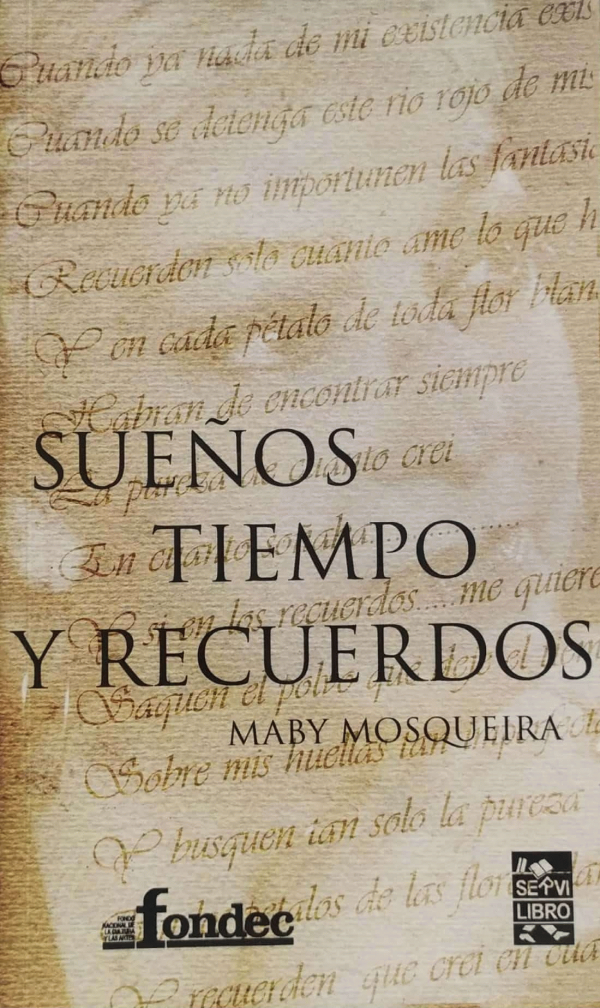 Cuando ya nada de mi existencia exis
Cuando se detenga este rio rojo de mis
Cuando ya no importunen las fantasia
Recuerden solo cuanto ame lo que h
Y en cada pétalo de toda flor blan
Habran de encontrar siempre
SUEÑOS
La pureza de cuanto crei
TIEMPO
En cuanto soñaba
Y si en los recuerdos.....me quiere
Y RECUERDOS
Saquen el polvo que dejo el
MABY MOSQUEIRA
Sobre mis huellas tan imperfecta
Y busquen tan solo la pureza
pétalos de las flor blan
FONDO NACIONAL DE LA CULTURA Y LAS ARTES
fondec
SERVI
LIBRO
recuerden que crei en cua